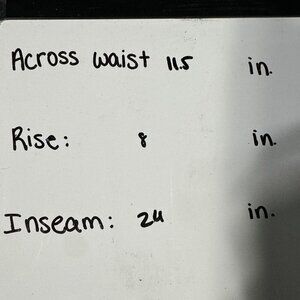 Across waist 11.5 in.
Rise: 8 in.
Inseam: 24 in.